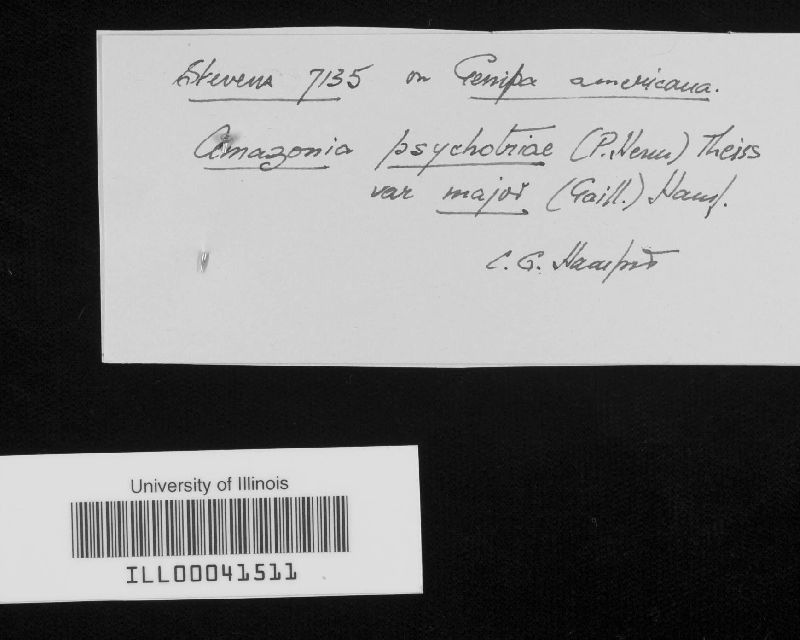 Stevens 7135 on Genipa americana.
Amazonia psychotriae (P. Henn) Theiss
var major (Gaill.) Hansf.
C. G. Hansford
University of Illinois
ILL00041511